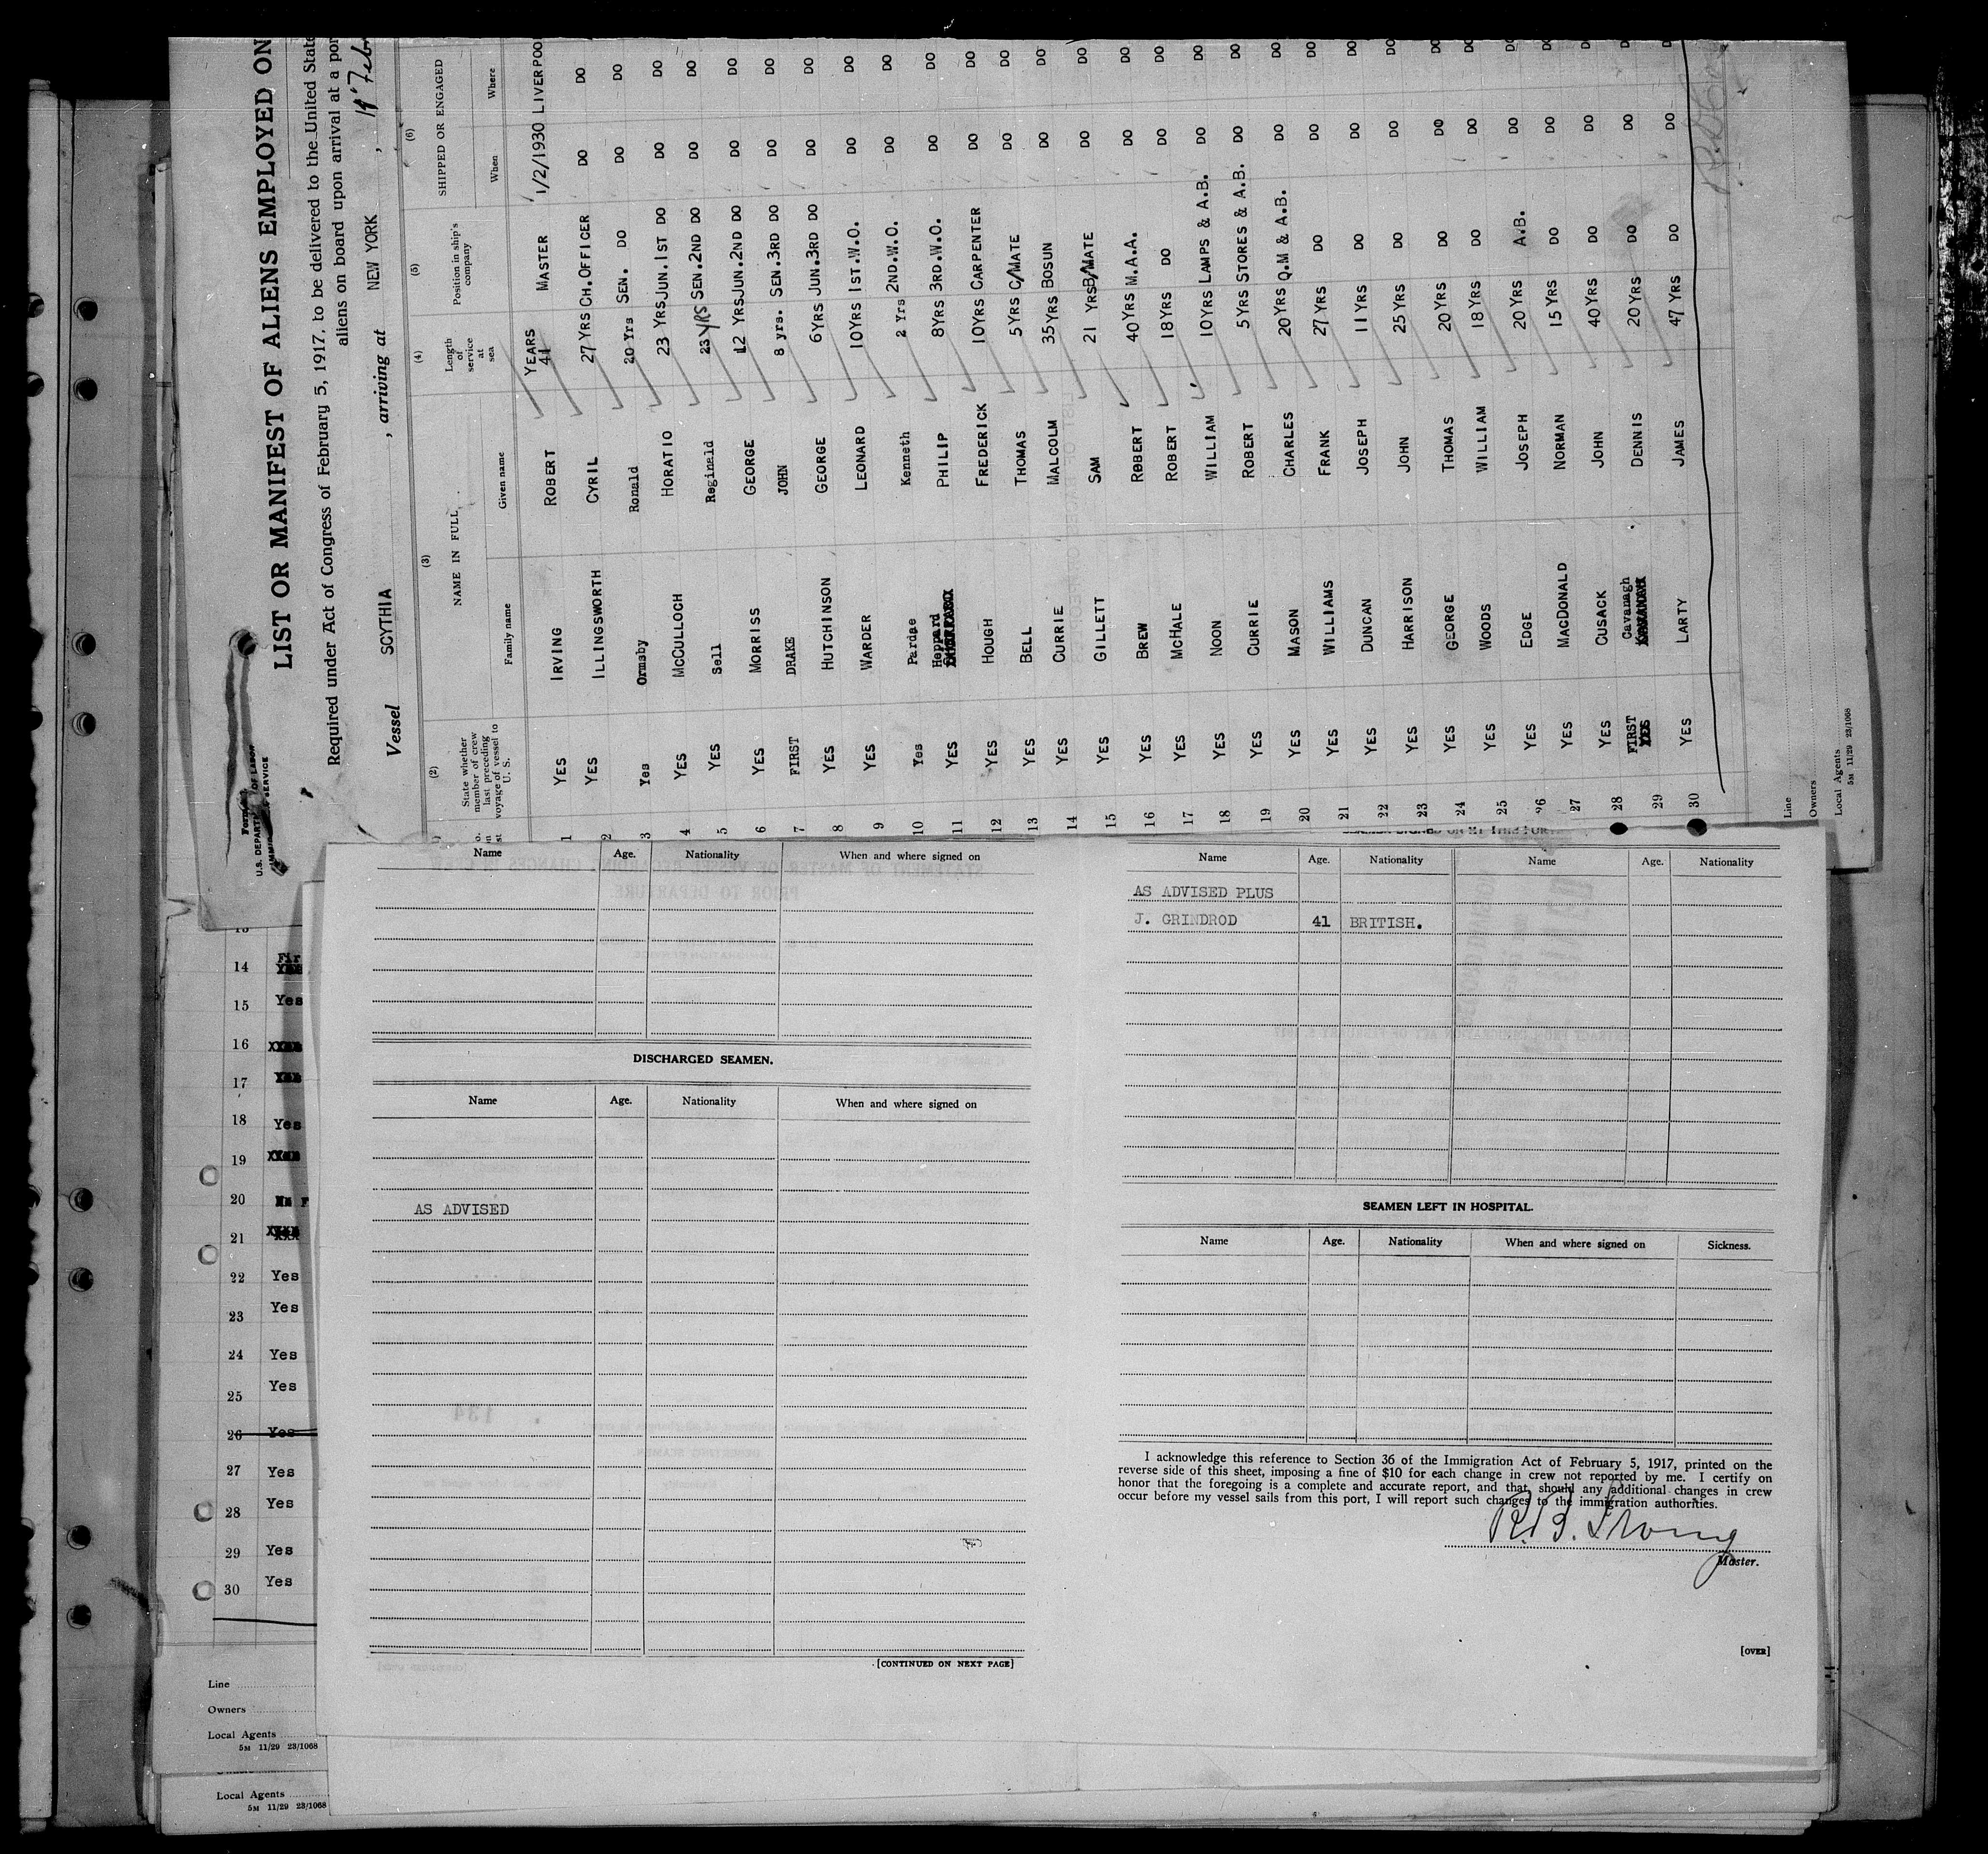 LIST OR MANIFEST OF ALIENS EMPLOYED ON
Required under Act of Congress of February 5, 1917, to be delivered to the United State
aliens on board upon arrival at a por
Vessel SCYTHIA , arriving at NEW YORK , 19
U.S. DEPARTM OF LABOR
(2) (3) (4) (5) (6)
State whether member of crew last preceding voyage of vessel to U. S.
NAME IN FULL
Family name Given name
Length of service at sea
Position in ship's company
SHIPPED OR ENGAGED
When Where
1 YES IRVING ROBERT YEARS 41 MASTER 1/2/1930 LIVERPOO
2 YES ILLINGSWORTH CYRIL 27 YRS CH.OFFICER DO DO
3 Yes Ormsby Ronald 20 Yrs SEN. DO DO DO
4 YES McCULLOCH HORATIO 23 YRS JUN.1ST DO DO DO
5 YES Sell Reginald 23 YRS SEN.2ND DO DO DO
6 YES MORRISS GEORGE 12 YRS JUN.2ND DO DO DO
7 FIRST DRAKE JOHN 8 yrs. SEN.3RD DO DO DO
8 YES HUTCHINSON GEORGE 6 YRS JUN.3RD DO DO DO
9 YES WARDER LEONARD 10 YRS 1ST.W.O. DO DO
10 Yes Pardoe Kenneth 2 Yrs 2ND.W.O. DO DO
11 YES Heppard PHILIP 8 YRS 3RD.W.O. DO DO
12 YES HOUGH FREDERICK 10 YRS CARPENTER DO DO
13 YES BELL THOMAS 5 YRS C/MATE DO DO
14 YES CURRIE MALCOLM 35 YRS BOSUN DO DO
15 YES GILLETT SAM 21 YRS B/MATE DO DO
16 YES BREW ROBERT 40 YRS M.A.A. DO DO
17 YES McHALE ROBERT 18 YRS DO DO DO
18 YES NOON WILLIAM 10 YRS LAMPS & A.B. DO DO
19 YES CURRIE ROBERT 5 YRS STORES & A.B. DO DO
20 YES MASON CHARLES 20 YRS Q.M & A.B. DO DO
21 YES WILLIAMS FRANK 27 YRS DO DO DO
22 YES DUNCAN JOSEPH 11 YRS DO DO DO
23 YES HARRISON JOHN 25 YRS DO DO DO
24 YES GEORGE THOMAS 20 YRS DO DO DO
25 YES WOODS WILLIAM 18 YRS DO DO DO
26 YES EDGE JOSEPH 20 YRS A.B. DO DO
27 YES MACDONALD NORMAN 15 YRS DO DO DO
28 YES CUSACK JOHN 40 YRS DO DO DO
29 FIRST Cavanagh DENNIS 20 YRS DO DO DO
30 YES LARTY JAMES 47 YRS DO DO DO
Line
Owners
Local Agents
5M 11/29 23/1068
14 Fir
15 Yes
16
17 Yes
18 Yes
19
20
21
22 Yes
23 Yes
24 Yes
25 Yes
26 Yes
27 Yes
28 Yes
29 Yes
30 Yes
Line
Owners
Local Agents
5M 11/29 23/1068
Local Agents
5M 11/29 23/1068
Name Age. Nationality When and where signed on
DISCHARGED SEAMEN.
Name Age. Nationality When and where signed on
AS ADVISED
[CONTINUED ON NEXT PAGE]
Name Age. Nationality Name Age. Nationality
AS ADVISED PLUS
J. GRINDROD 41 BRITISH.
SEAMEN LEFT IN HOSPITAL.
Name Age. Nationality When and where signed on Sickness.
I acknowledge this reference to Section 36 of the Immigration Act of February 5, 1917, printed on the
reverse side of this sheet, imposing a fine of $10 for each change in crew not reported by me. I certify on
honor that the foregoing is a complete and accurate report, and that, should any additional changes in crew
occur before my vessel sails from this port, I will report such changes to the immigration authorities.
R.B. Irving
Master.
[OVER]